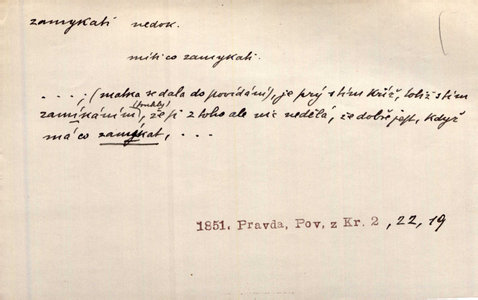 zamykati nedok.
míti co zamykati.
. . . ., (matka se dala do povídání), je prý s tím kříž, totiž s tím
zamíkáním (truhly), že si z toho ale nic nedělá, že dobře jest, když
má co zamíkat, . . .
1851. Pravda, Pov. z Kr. 2, 22, 19